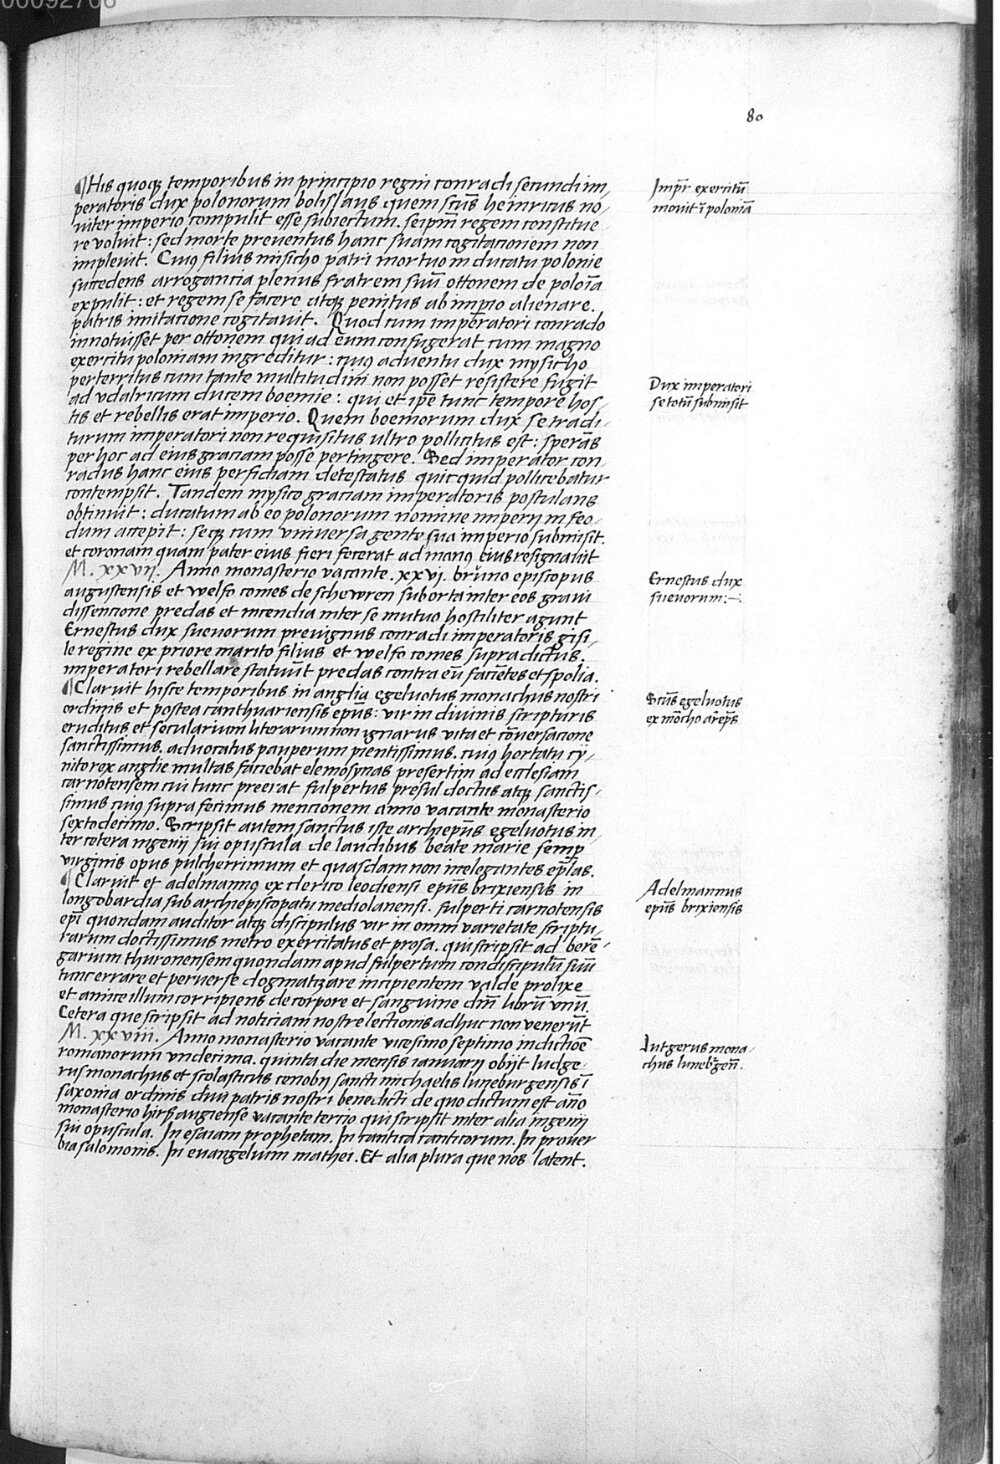 00092708
80
¶His quoqꝫ temporibus in principio regni conradi secundi im⸗
peratoris dux polonorum bolislaus quem scūs heinricus no⸗
viter imperio compulit esse subiectum. seipm̄ regem constitue
re voluit: sed morte preventus hanc suam cogitacionem non
implevit. Cuiꝰ filius misicho patri mortuo in ducatu polonie
succedens arrogancia plenus fratrem suū ottonem de poloīa
expulit: et regem se facere atqꝫ penitus ab imꝑio alienare.
patris imitacione cogitavit. Quod cum imperatori conrado
innotuisset per ottonem qui ad eum confugerat cum magno
exercitu poloniam ingreditur: cuiꝰ adventu dux mysicho
perterritus cum tante multitudini non posset resistere fugit
ad vdalricum ducem boemie: qui et ipē tunc tempore hos⸗
tis et rebellis erat imperio. Quem boemorum dux se tradi⸗
turum imperatori non requisitus ultro pollicitus est: sperās
per hoc ad eius graciam posse pertingere. Sed imperator con
radus hanc eius perfidiam detestatus quicquid pollicebatur
contempsit. Tandem mysico graciam imperatoris postulans
obtinuit: ducatum ab eo polonorum nomine imperij in feo⸗
dum accepit: seqꝫ cum vniversa gente sua imperio submisit.
et coronam quam pater eius fieri fecerat ad manꝰ eius resignavit
M. xxvij. Anno monasterio vacante. xxvj. brūno episcopus
augustensis et welfo comes de schewren suborta inter eos gravi
dissencione predas et incendia inter se mutuo hostiliter agunt
Ernestus dux suevorum prevignus conradi imperatoris gisi⸗
le regine ex priore marito filius et welfo comes supradictus.
imperatori rebellare statuūt predas contra eū faciētes et spolia.
¶Claruit hisce temporibus in anglia egelnotus monachus nostri
ordinis et postea canthuariensis epūs: vir in divinis scripturis
eruditus et secularium literarum non ignarus vita et cōversacione
sanctissimus. advocatus pauperum pientissimus. cuiꝰ hortatu cy⸗
nito rex anglie multas faciebat elemosynas presertim ad ecclesiam
carnotensem cui tunc preerat fulpertus presul doctus atqꝫ sanctis⸗
simus cuiꝰ supra fecimus mencionem anno vacante monasterio
sextodecimo. Scripsit autem sanctus iste archiepūs egelnotus in
ter cetera ingenij sui opuscula de laudibus beate marie semꝑ
virginis opus pulcherrimum et quasdam non inelegantes ep̄las.
¶Claruit et adelmannꝰ ex clerico leodiensi epūs brixiensis in
longobardia sub archiepiscopatu mediolanensi. fulperti carnotensis
epī quondam auditor atqꝫ discipulus vir in omni varietate scriptu⸗
rarum doctissimus metro exercitatus et prosa. qui scripsit ad berē⸗
garium thuronensem quondam apud fulpertum condiscipulū suū
tunc errare et perverse dogmatizare incipientem valde prolixe
et amice illum corripiens de corpore et sanguine dn̄i librū vnū.
Cetera que scripsit ad noticiam nostre lectionis adhuc non venerūt
M. xxviii. Anno monasterio vacante vicesimo septimo indictiōe
romanorum vndecima. quinta die mensis ianuarij obijt ludge⸗
rus monachus et scolasticus cenobij sancti michaelis luneburgensis ī
saxonia ordinis divi patris nostri benedicti de quo dictum est āno
monasterio hirs̄augiense vacante tercio qui scripsit inter alia ingenij
sui opuscula. In esaiam prophetam. In cantica canticorum. In prover
bia salomonis. In euangelium mathei. Et alia plura que nos latent.
Imp̄r exercitū
movit ī poloniā
Dux imperatori
se totū submisit
Ernestus dux
suevorum:~.
Scūs egelnotus
ex mōcho arēpūs
Adelmannus
epūs brixiensis
Lutgerus mona⸗
chus luneb̄gen̄.